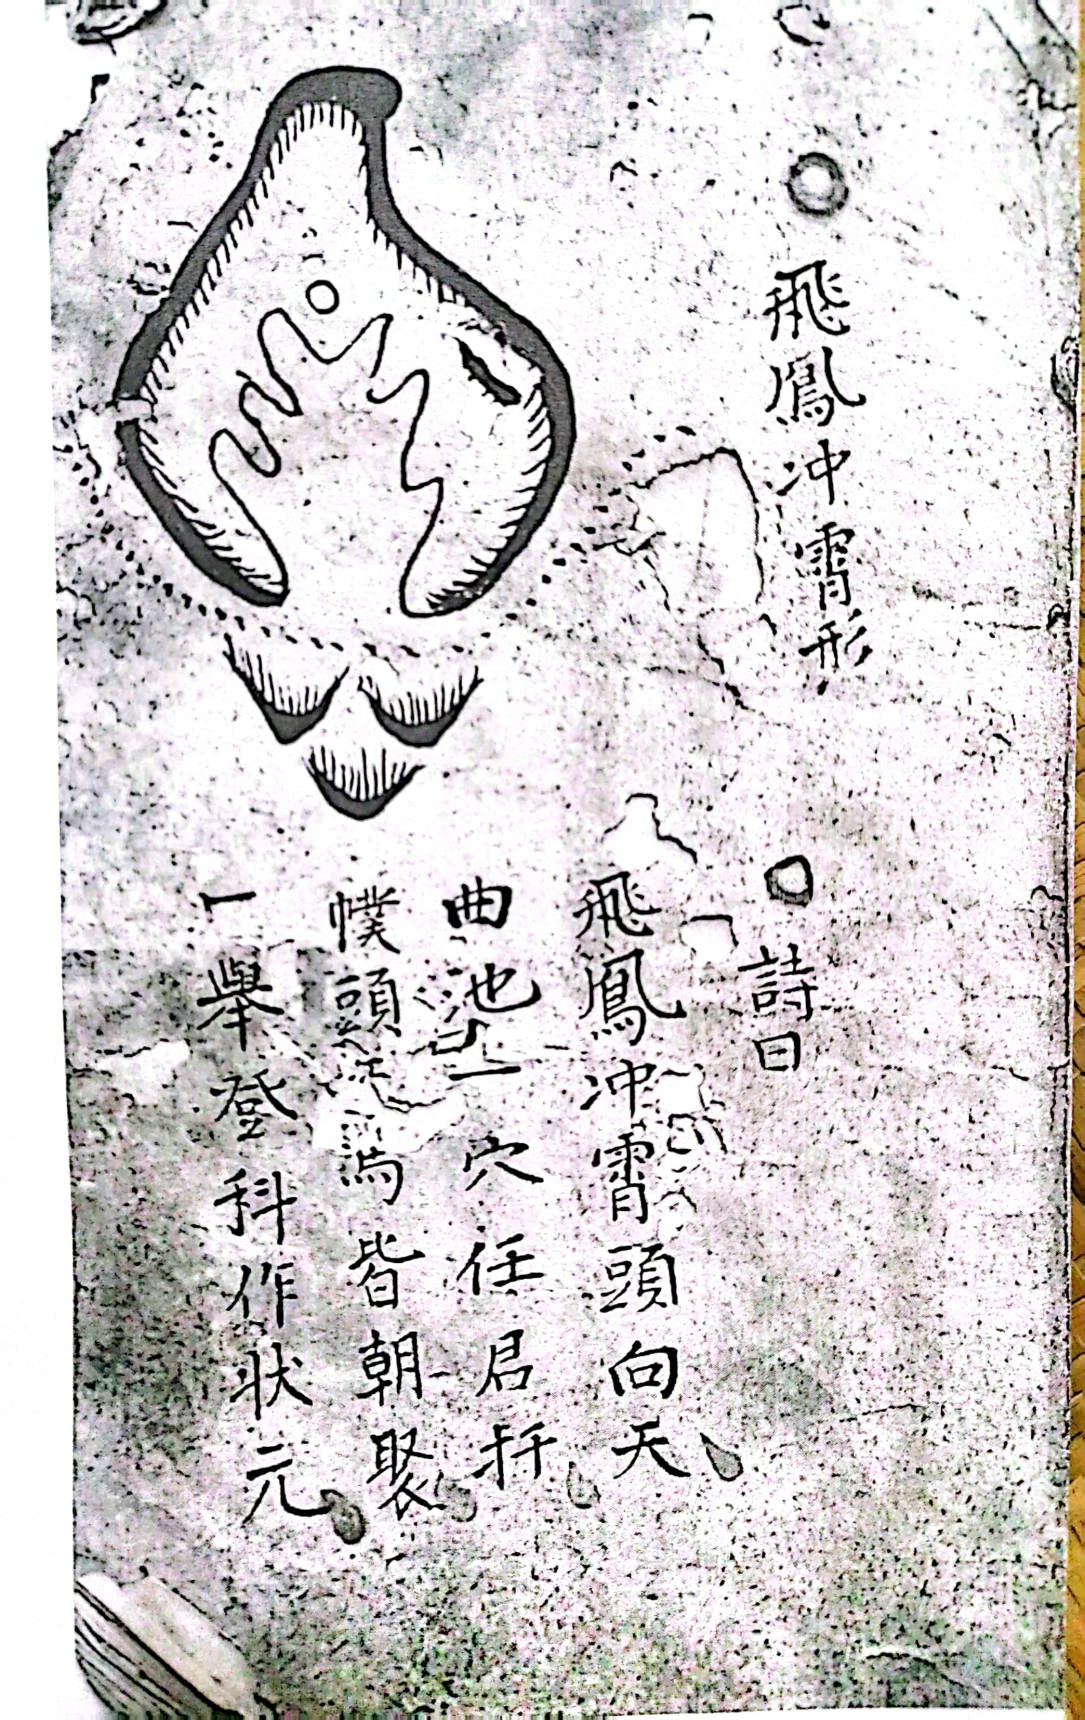 ○飛鳳冲霄形
○詩曰
飛鳳冲霄頭向天
曲池一穴任君扦
幞頭皆朝聚
一舉登科作状元